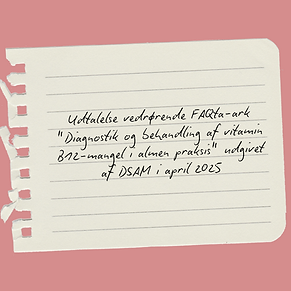 Udtalelse vedrørende FAQta-ark
"Diagnostik og behandling af vitamin
B12-mangel i almen praksis" udgivet
af DSAM i april 2025